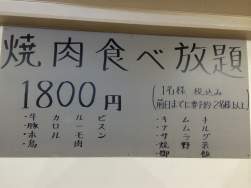 焼肉食べ放題
1800円
1名様 税込み
(前日までに要予約2名様以上)
・牛カルビ
・豚ロース
・ホルモン
・鳥肉
・キムチ
・ナムル
・サラダ
・焼野菜
・御飯